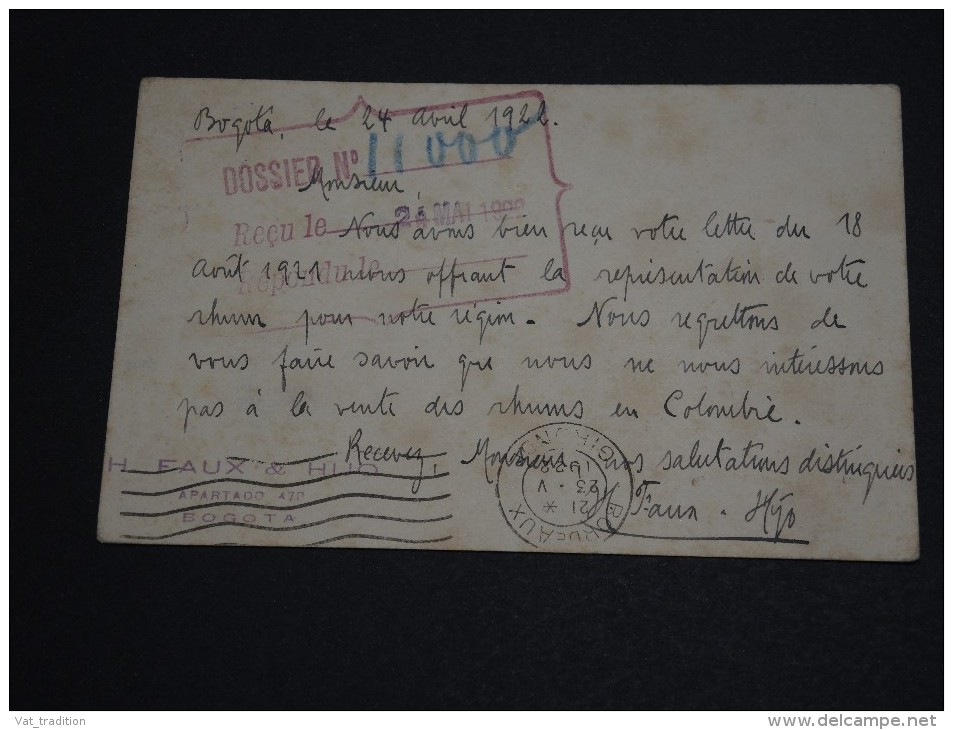 Bogotá, le 24 avril 1922.
DOSSIER No 11000
Monsieur,
Reçu le 24 MAI 1922
Nous avons bien reçu votre lettre du 18
Répondu le
Août 1921 nous offrant la représentation de votre
rhum pour notre région. Nous regrettons de
vous faire savoir que nous ne nous intéressons
pas à la vente des rhums en Colombie.
Recevez, Monsieur, nos salutations distinguées
H. Faux. Hijo
H. FAUX & HIJO
APARTADO
BOGOTA
BORDEAUX
21 *
23 - V
Vat_tradition
www.delcampe.net